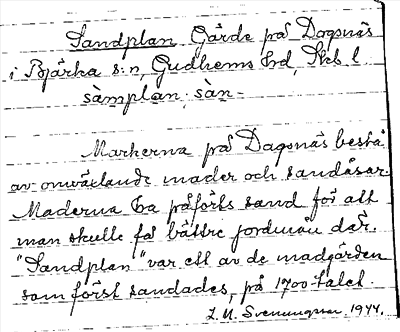 Sandplan Gärde på Dagsnäs
i Bjärka s:n, Gudhems hd, Skb. l.
sàmplan, sàn-
Markerna på Dagsnäs bestå
av omväxlande mader och sandåsar.
Maderna har påförts sand för att
man skulle få bättre jordmån där.
"Sandplan" var ett av de madgärden
som först sandades, på 1700-talet.
Svenungsson 1944.